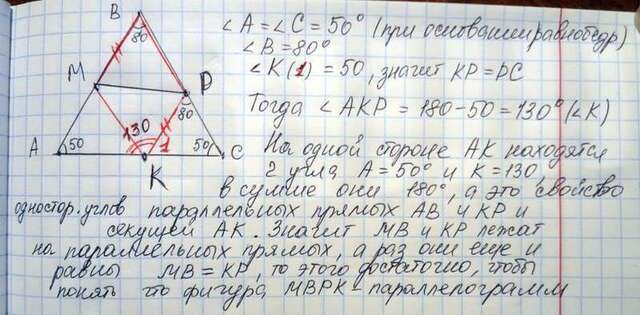 B
80
M
P
80
130
1
A
50
50
C
K
∠A=∠C=50° (при основании равнобедр)
∠B=80°
∠K(1)=50, значит KP=PC
Тогда ∠AKP=180-50=130° (∠K)
На одной стороне AK находятся
2 угла A=50° и K=130,
в сумме они 180°, а это свойство
одностор. углов параллельных прямых AB и KP и
секущей AK. Значит MB и KP лежат
на параллельных прямых, а раз они еще и
равны MB=KP, то этого достаточно, чтобы
понять что фигура MBPK-параллелограмм